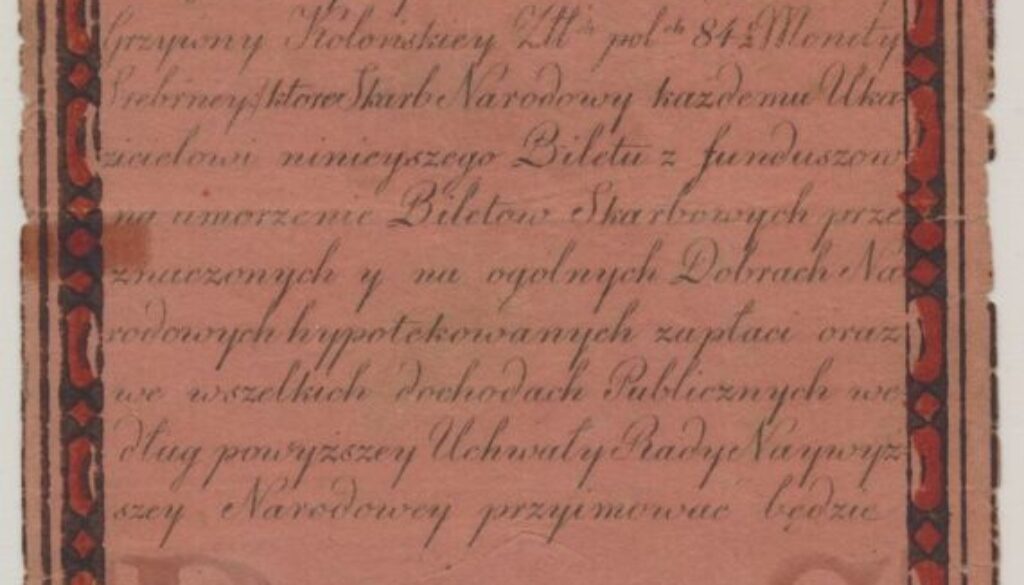 Grzywny Kolońskiey Złł. pol. 84½ Monety
Srebrney, które Skarb Narodowy każdemu Uka-
zicielowi ninieyszego Biletu z funduszow
na umorzenie Biletow Skarbowych prze
znaczonych y na ogólnych Dobrach Na
rodowych hypotekowanych zapłaci oraz
we wszelkich dochodach Publicznych we-
dług powyższey Uchwały Rady Naywyż-
szey Narodowey przyimować będzie